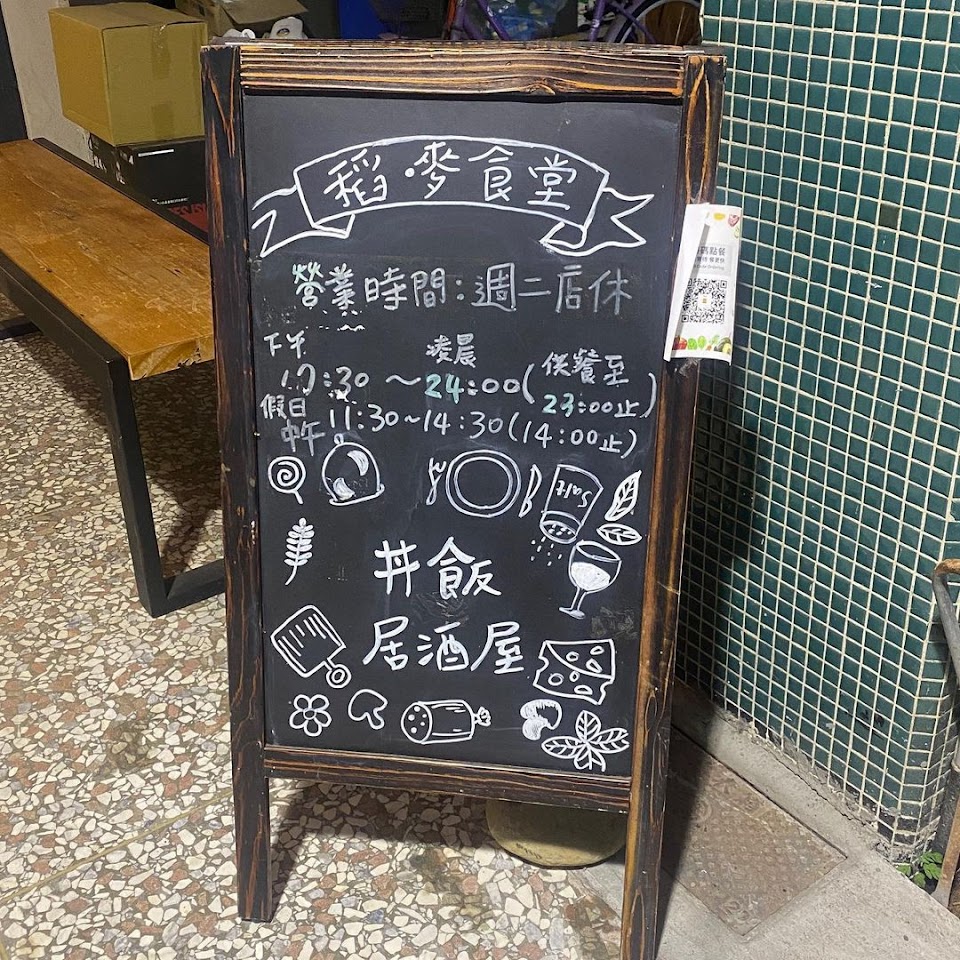 稻麥食堂
營業時間:週二店休
下午 凌晨 供餐至
17:30～24:00(23:00止)
假日中午 11:30~14:30(14:00止)
Salt
丼飯
居酒屋
點餐